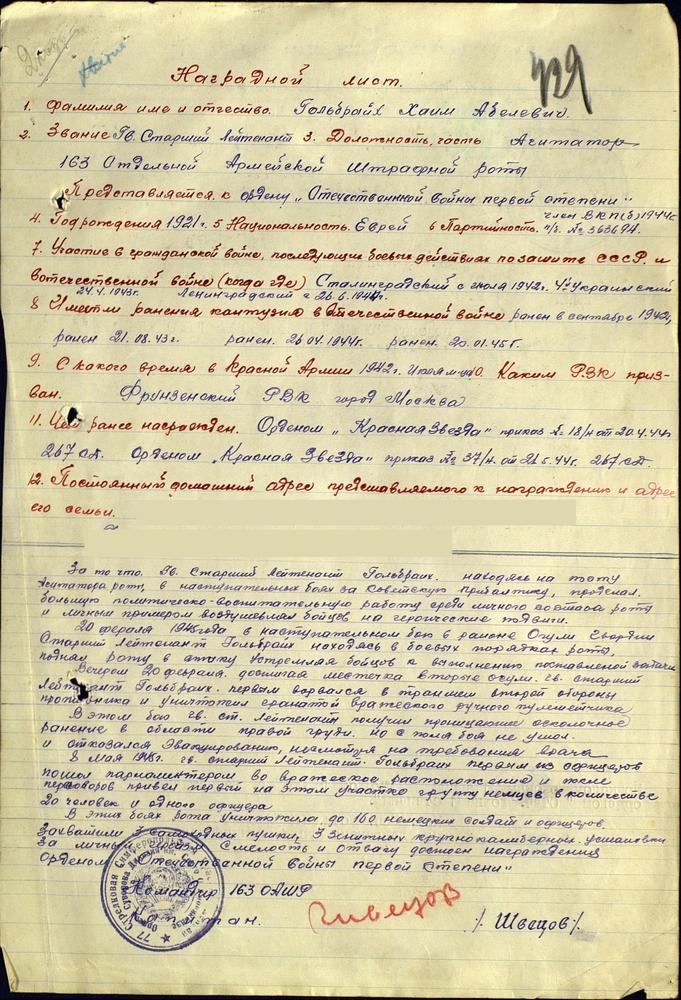 429
Наградной лист.
1. Фамилия име и отчество. Гольбрайх Хаим Абелевич.
2. Звание Гв. Старший Лейтенант 3. Должность, часть Агитатор
163 Отдельной Армейской Штрафной роты
Представляется к ордену „Отечественной войны первой степени"
член ВКП(б) 1944г.
4. Год рождения 1921г. 5 Национальность. Еврей 6 Партийность. п/б. № 363694.
7. Участие в гражданской войне, последующих боевых действиях по защите СССР. и
в отечественной войне (когда где) Сталинградский с июля 1942г. 4й Украинский
24.4.1943г. Ленинградский с 26.6.1944г.
8 Имеет ли ранения кантузия в Отечественной войне ранен в сентябре 1942г,
ранен 21.08.43г. ранен. 26.04.1944г. ранен. 20.01.45г.
9. С какого время в Красной Армии 1942г. 10. Каким РВК приз-
ван. Фрунзенский РВК город Москва
11. Чем ранее награжден. Орденом „Красная Звезда" приказ № 18/н от 20.4.44г
267 сд. Орденом „Красная Звезда" приказ № 37/н. от 21.5.44г. 267 сд.
12. Постоянный домашний адрес представляемого к награждению и адрес
его семьи.
За то что, Гв. Старший Лейтенант Гольбрайх. находясь на посту
Агитатора роты, в наступательных боях за Советскую Прибалтику, проделал.
большую политическо-воспитательную работу среди личного состава роты
и личным примером воодушевлял бойцов на героические подвиги.
20 февраля 1945 года в наступательном бою в районе Огули Гвардии
Старший Лейтенант Гольбрайх находясь в боевых порядках роты,
поднял роту в атаку устремляя бойцов к выполнению поставленой задачи
Вечером 20 февраля. досмигая местечка вторые осули. гв. старший
Лейтенант Гольбрайх. первым ворвался в траншеи второй обороны
противника и уничтожил гранатой вражеского ручного пулеметчика
В этом бою гв. ст. Лейтенант получил проницающие осколочное
ранение в области правой груди. но с поля боя не ушол.
и отказался Эвакуированию, несмотря на требования врача
8 Мая 1945г. гв. старший Лейтенант. Гольбрайх первым из офицеров
пошол парламентером во вражеское расположение и после
переговоров привел первый на этом участке группу немцев в количестве
20 человек и одного офицера
В этих боях рота уничтожила до 160 немецких солдат и офицеров.
Захватили 7 самоходных пушки, 3 зенитных крупнокалиберных. установки
За личную Смелость и отвагу достоен награждения
Орденом „Отечественной войны первой степени"
Командир 163 ОАШР
Капитан. Швецов /. Швецов/.
77 Стрелковая